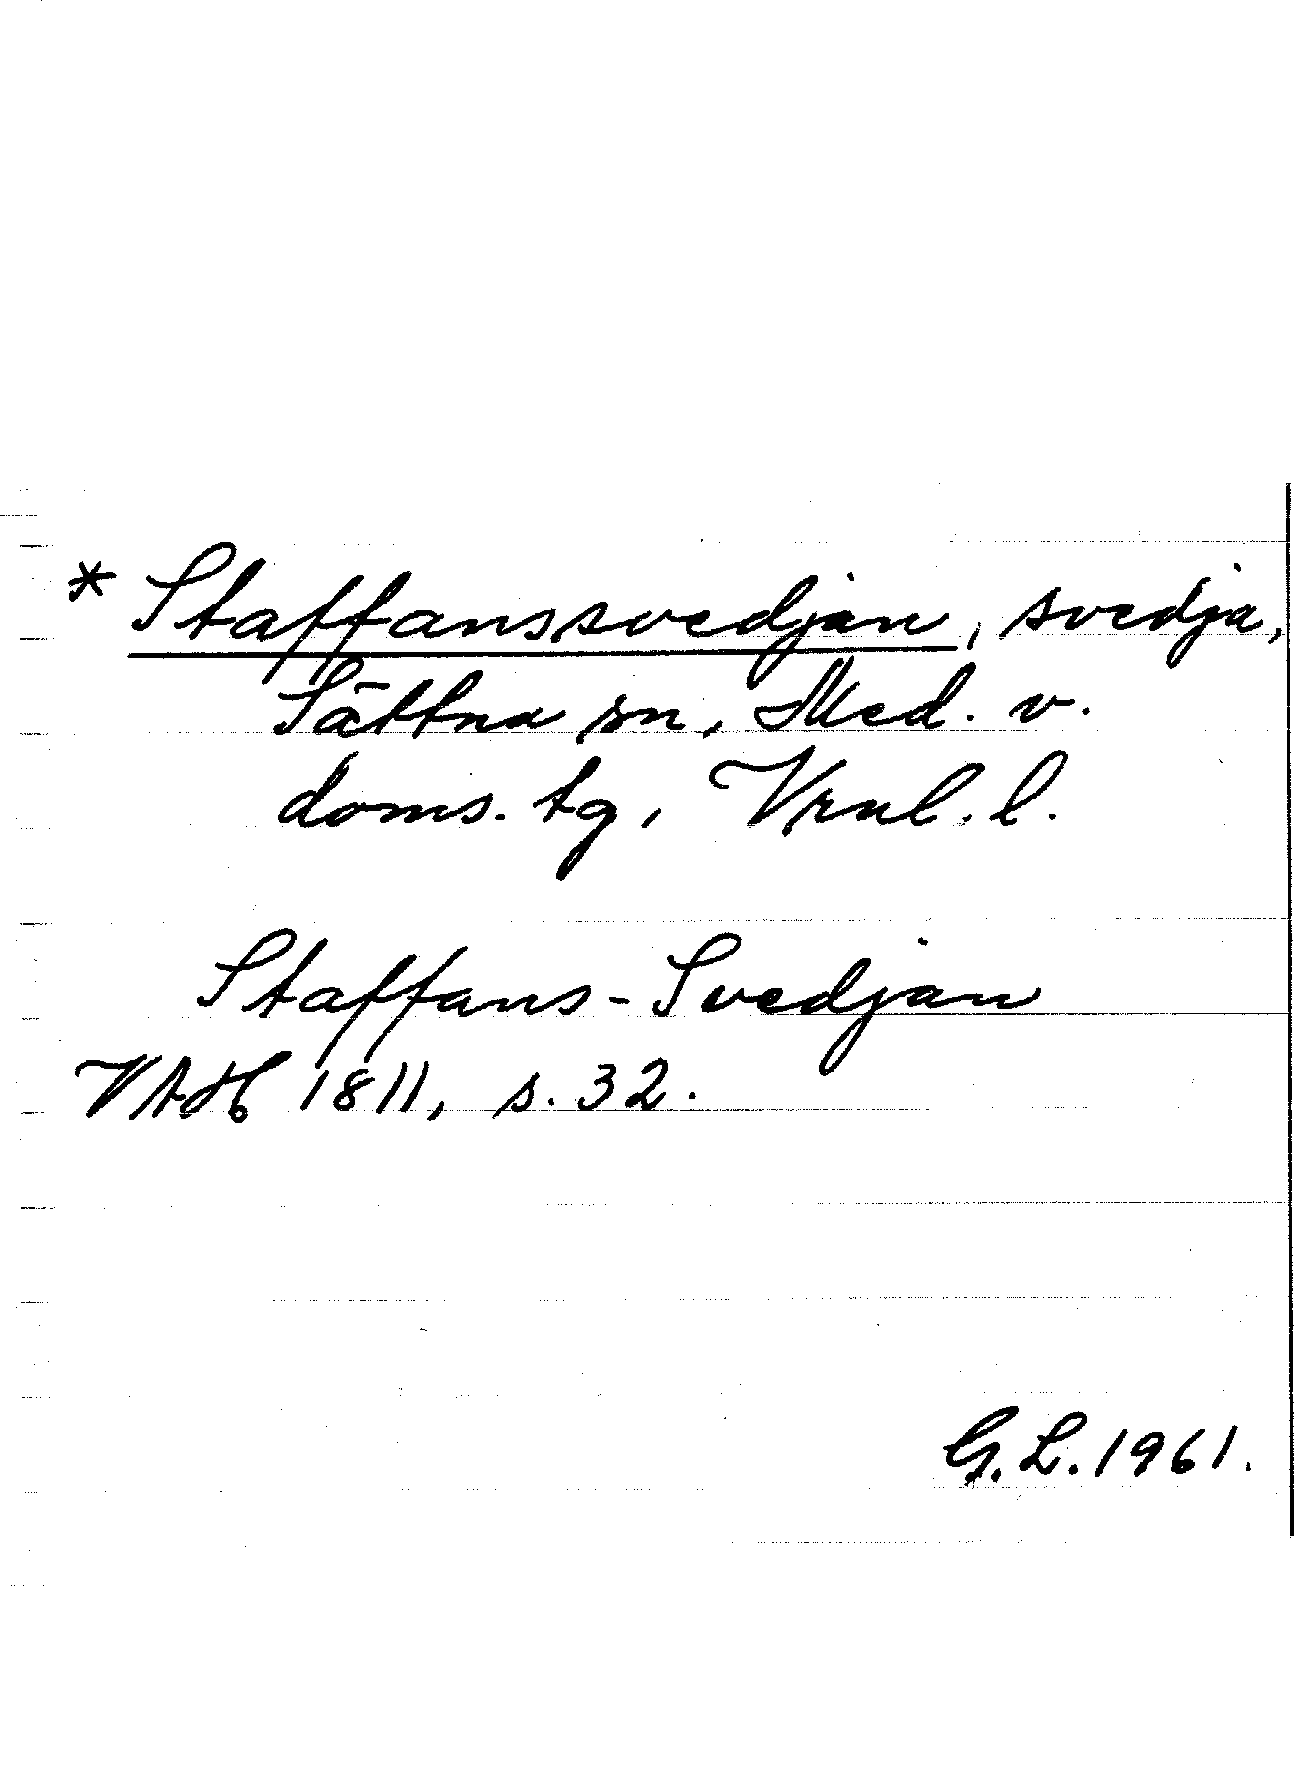 * Staffanssvedjan, svedja,
Sättna sn, Med. v.
doms. tg, Vrnl. l.
Staffans-Svedjan
VAH 1811, s. 32.
G. L. 1961.